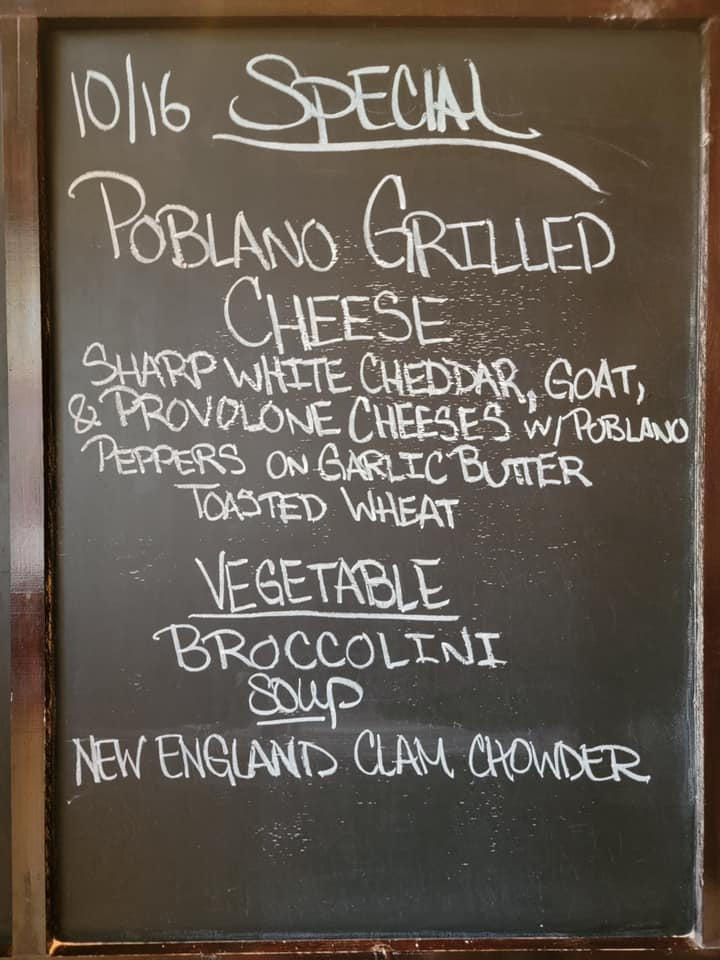 10/16 SPECIAL
POBLANO GRILLED
CHEESE
SHARP WHITE CHEDDAR, GOAT,
& PROVOLONE CHEESES W/POBLANO
PEPPERS ON GARLIC BUTTER
TOASTED WHEAT
VEGETABLE
BROCCOLINI
SOUP
NEW ENGLAND CLAM CHOWDER